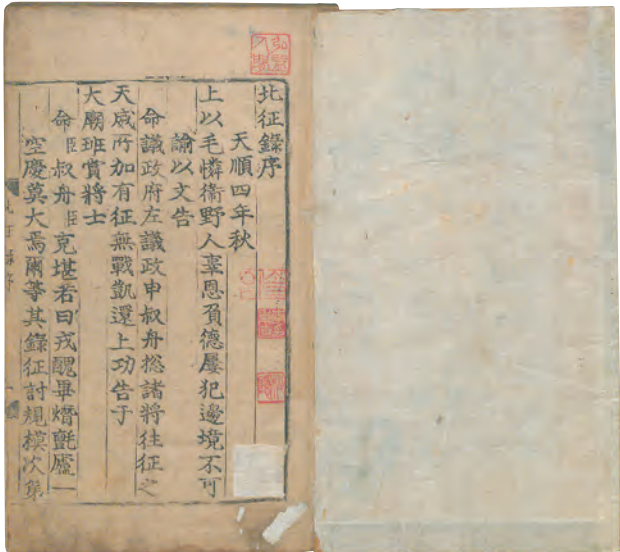 北征錄序
天順四年秋
上以毛憐衛野人辜恩負德屢犯邊境不可
諭以文告
命議政府左議政申叔舟揔諸將往征之
天威所加有征無戰凱還上功告于
大廟班賞將士
命臣叔舟臣克堪若曰戎醜畢殲氈廬一
空慶莫大焉爾等其錄征討規模次第